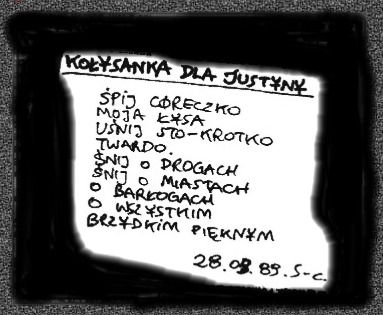 KOŁYSANKA DLA JUSTYNY
ŚPIJ CÓRECZKO
MOJA ŁYSA
UŚNIJ STO-KROTKO
TWARDO.
ŚNIJ O DROGACH
ŚNIJ O MIASTACH
O BARŁOGACH
O WSZYSTKIM
BRZYDKIM PIĘKNYM
28. 89. S-C.